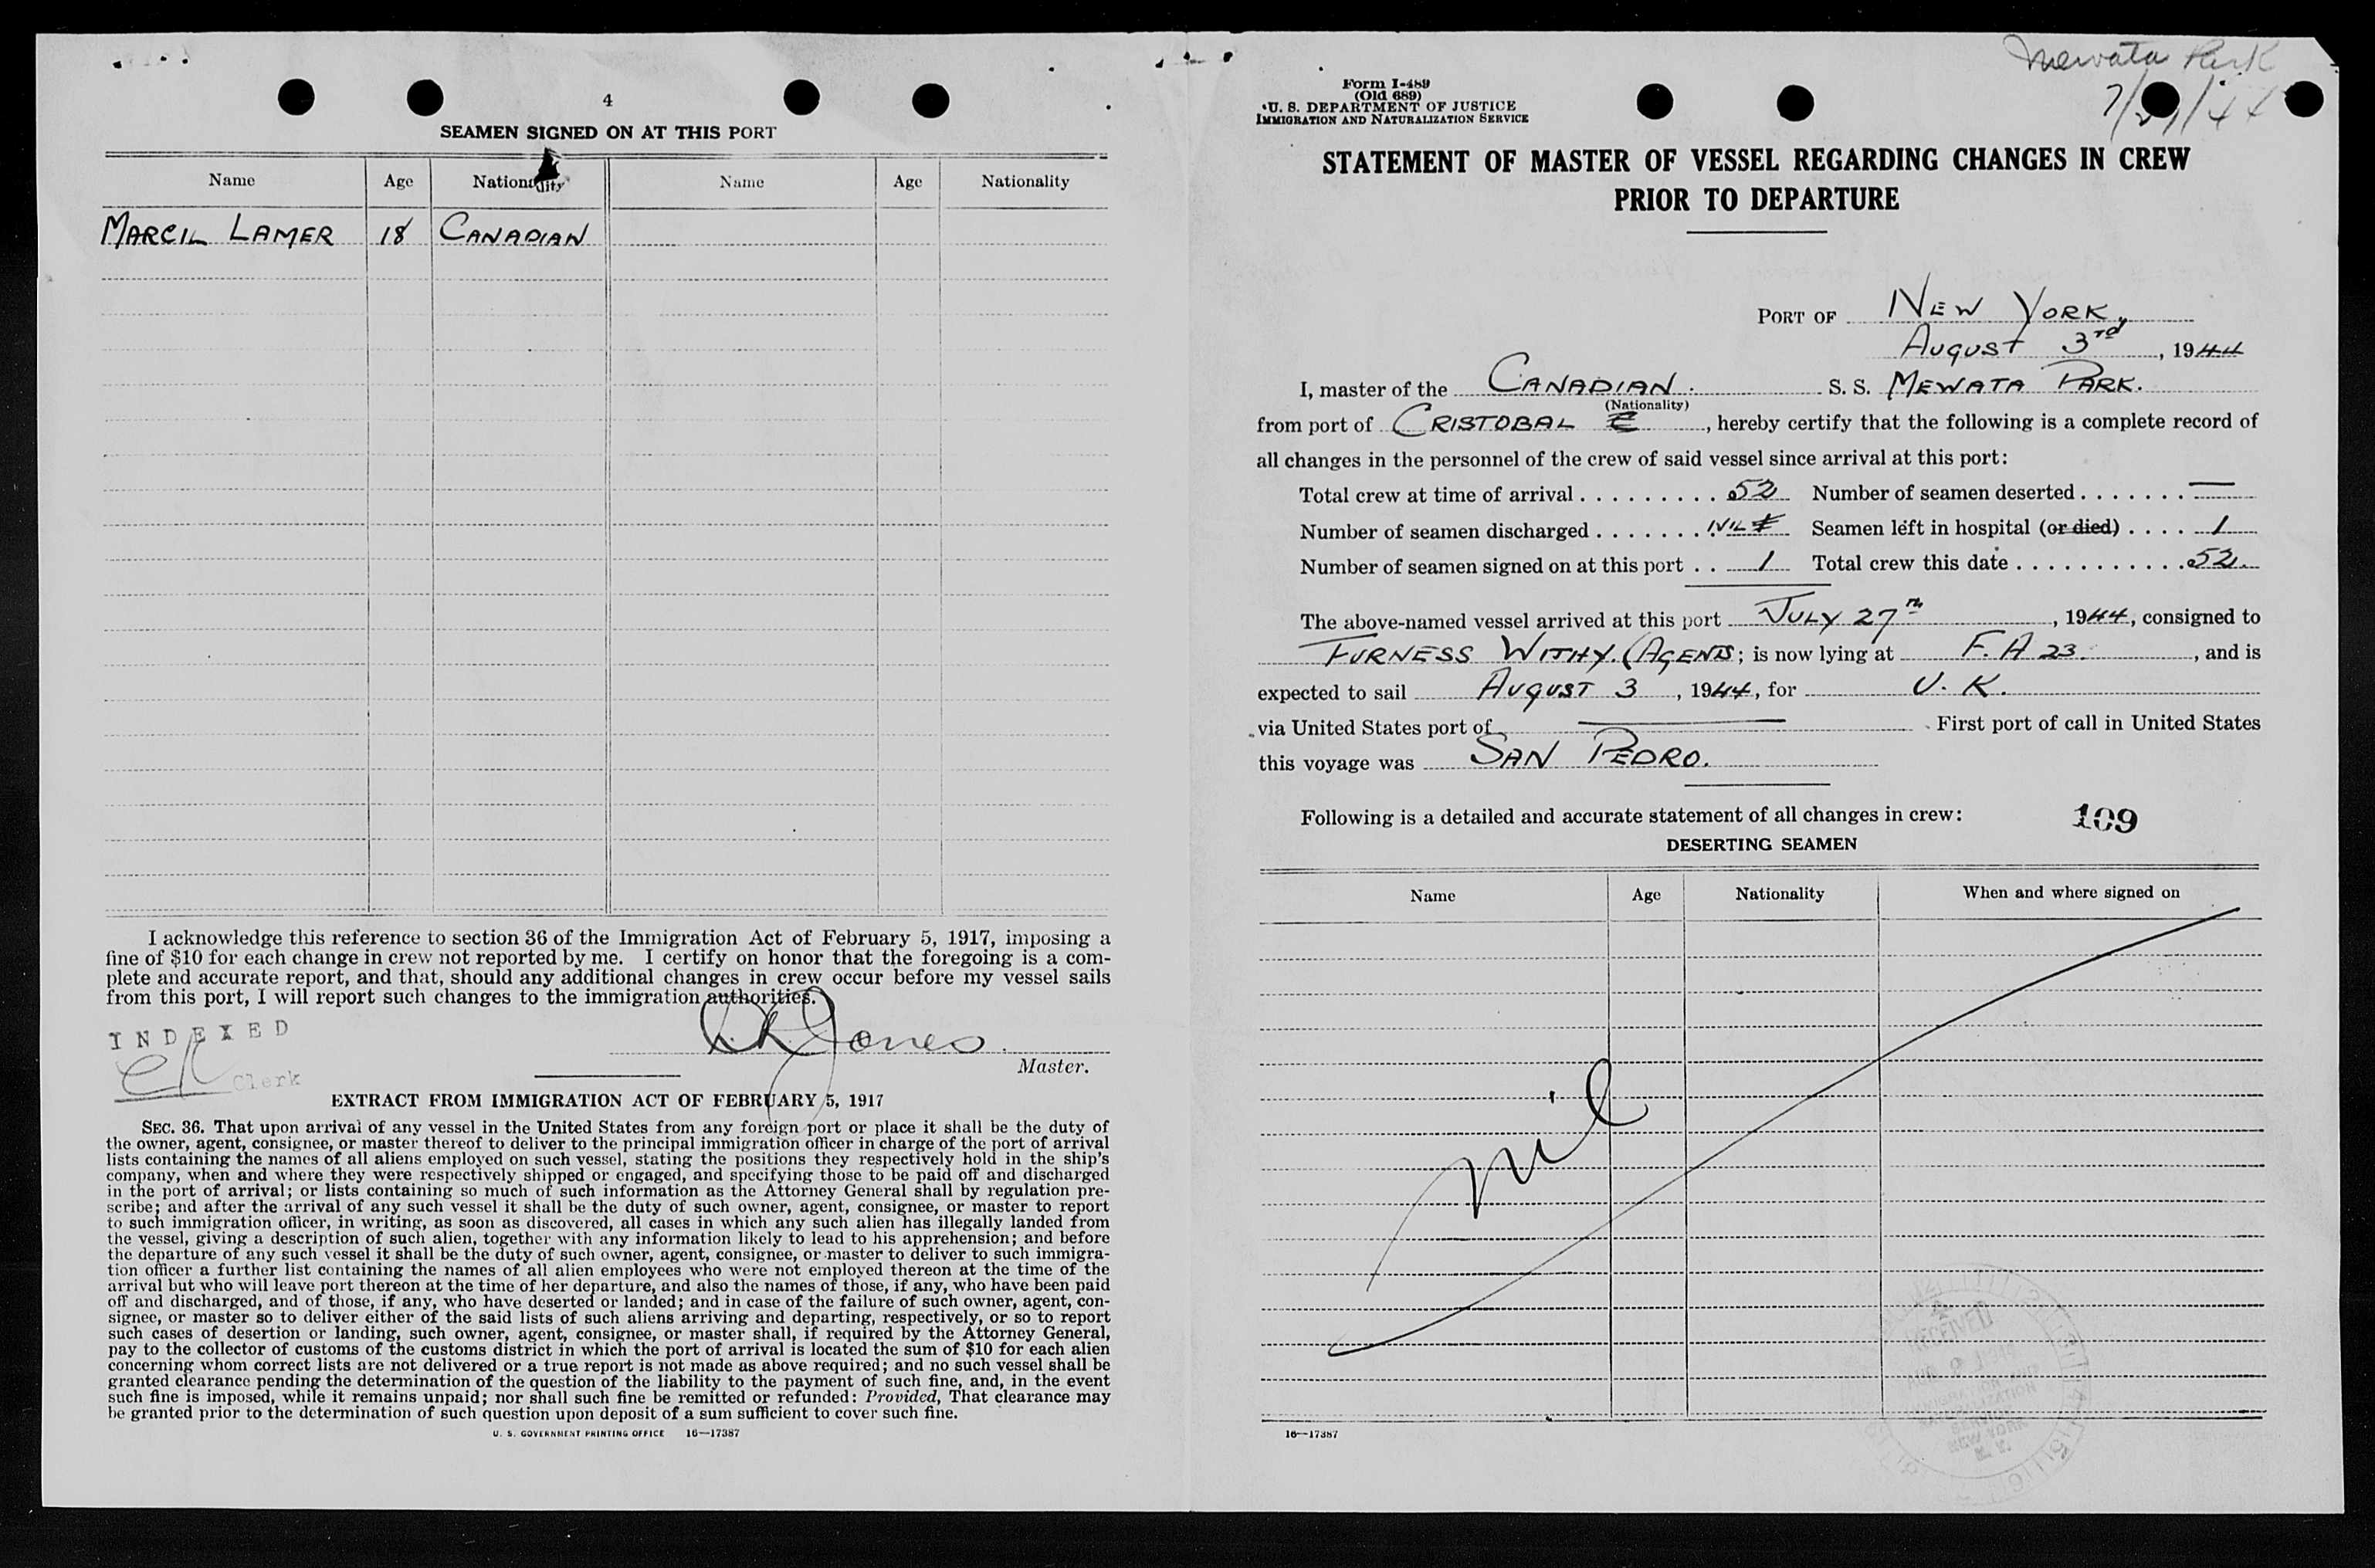 4
SEAMEN SIGNED ON AT THIS PORT
Name Age Nationality Name Age Nationality
MARCIL LAMER 18 CANADIAN
I acknowledge this reference to section 36 of the Immigration Act of February 5, 1917, imposing a
fine of $10 for each change in crew not reported by me. I certify on honor that the foregoing is a com-
plete and accurate report, and that, should any additional changes in crew occur before my vessel sails
from this port, I will report such changes to the immigration authorities.
INDEXED
Jones.
Clerk
Master.
EXTRACT FROM IMMIGRATION ACT OF FEBRUARY 5, 1917
SEC. 36. That upon arrival of any vessel in the United States from any foreign port or place it shall be the duty of
the owner, agent, consignee, or master thereof to deliver to the principal immigration officer in charge of the port of arrival
lists containing the names of all aliens employed on such vessel, stating the positions they respectively hold in the ship's
company, when and where they were respectively shipped or engaged, and specifying those to be paid off and discharged
in the port of arrival; or lists containing so much of such information as the Attorney General shall by regulation pre-
scribe; and after the arrival of any such vessel it shall be the duty of such owner, agent, consignee, or master to report
to such immigration officer, in writing, as soon as discovered, all cases in which any such alien has illegally landed from
the vessel, giving a description of such alien, together with any information likely to lead to his apprehension; and before
the departure of any such vessel it shall be the duty of such owner, agent, consignee, or master to deliver to such immigra-
tion officer a further list containing the names of all alien employees who were not employed thereon at the time of the
arrival but who will leave port thereon at the time of her departure, and also the names of those, if any, who have been paid
off and discharged, and of those, if any, who have deserted or landed; and in case of the failure of such owner, agent, con-
signee, or master so to deliver either of the said lists of such aliens arriving and departing, respectively, or so to report
such cases of desertion or landing, such owner, agent, consignee, or master shall, if required by the Attorney General,
pay to the collector of customs of the customs district in which the port of arrival is located the sum of $10 for each alien
concerning whom correct lists are not delivered or a true report is not made as above required; and no such vessel shall be
granted clearance pending the determination of the question of the liability to the payment of such fine, and, in the event
such fine is imposed, while it remains unpaid; nor shall such fine be remitted or refunded: Provided, That clearance may
be granted prior to the determination of such question upon deposit of a sum sufficient to cover such fine.
U. S. GOVERNMENT PRINTING OFFICE 16—17387
Mewata Park
7/27/44
Form I-489
(Old 689)
U. S. DEPARTMENT OF JUSTICE
IMMIGRATION AND NATURALIZATION SERVICE
STATEMENT OF MASTER OF VESSEL REGARDING CHANGES IN CREW
PRIOR TO DEPARTURE
PORT OF NEW YORK,
AUGUST 3rd, 1944
I, master of the CANADIAN. S. S. MEWATA PARK.
(Nationality)
from port of CRISTOBAL, hereby certify that the following is a complete record of
all changes in the personnel of the crew of said vessel since arrival at this port:
Total crew at time of arrival . . . . . . . . . 52 Number of seamen deserted . . . . . . . —
Number of seamen discharged . . . . . . . NIL Seamen left in hospital (or died) . . . . 1
Number of seamen signed on at this port . . 1 Total crew this date . . . . . . . . . . . 52.
The above-named vessel arrived at this port JULY 27th, 1944, consigned to
FURNESS WITHY. (AGENTS; is now lying at F. A 23., and is
expected to sail AUGUST 3, 1944, for U. K.
via United States port of ——. First port of call in United States
this voyage was SAN PEDRO.
Following is a detailed and accurate statement of all changes in crew: 109
DESERTING SEAMEN
Name Age Nationality When and where signed on
nil
RECEIVED
NEW YORK
N. Y.
16—17387